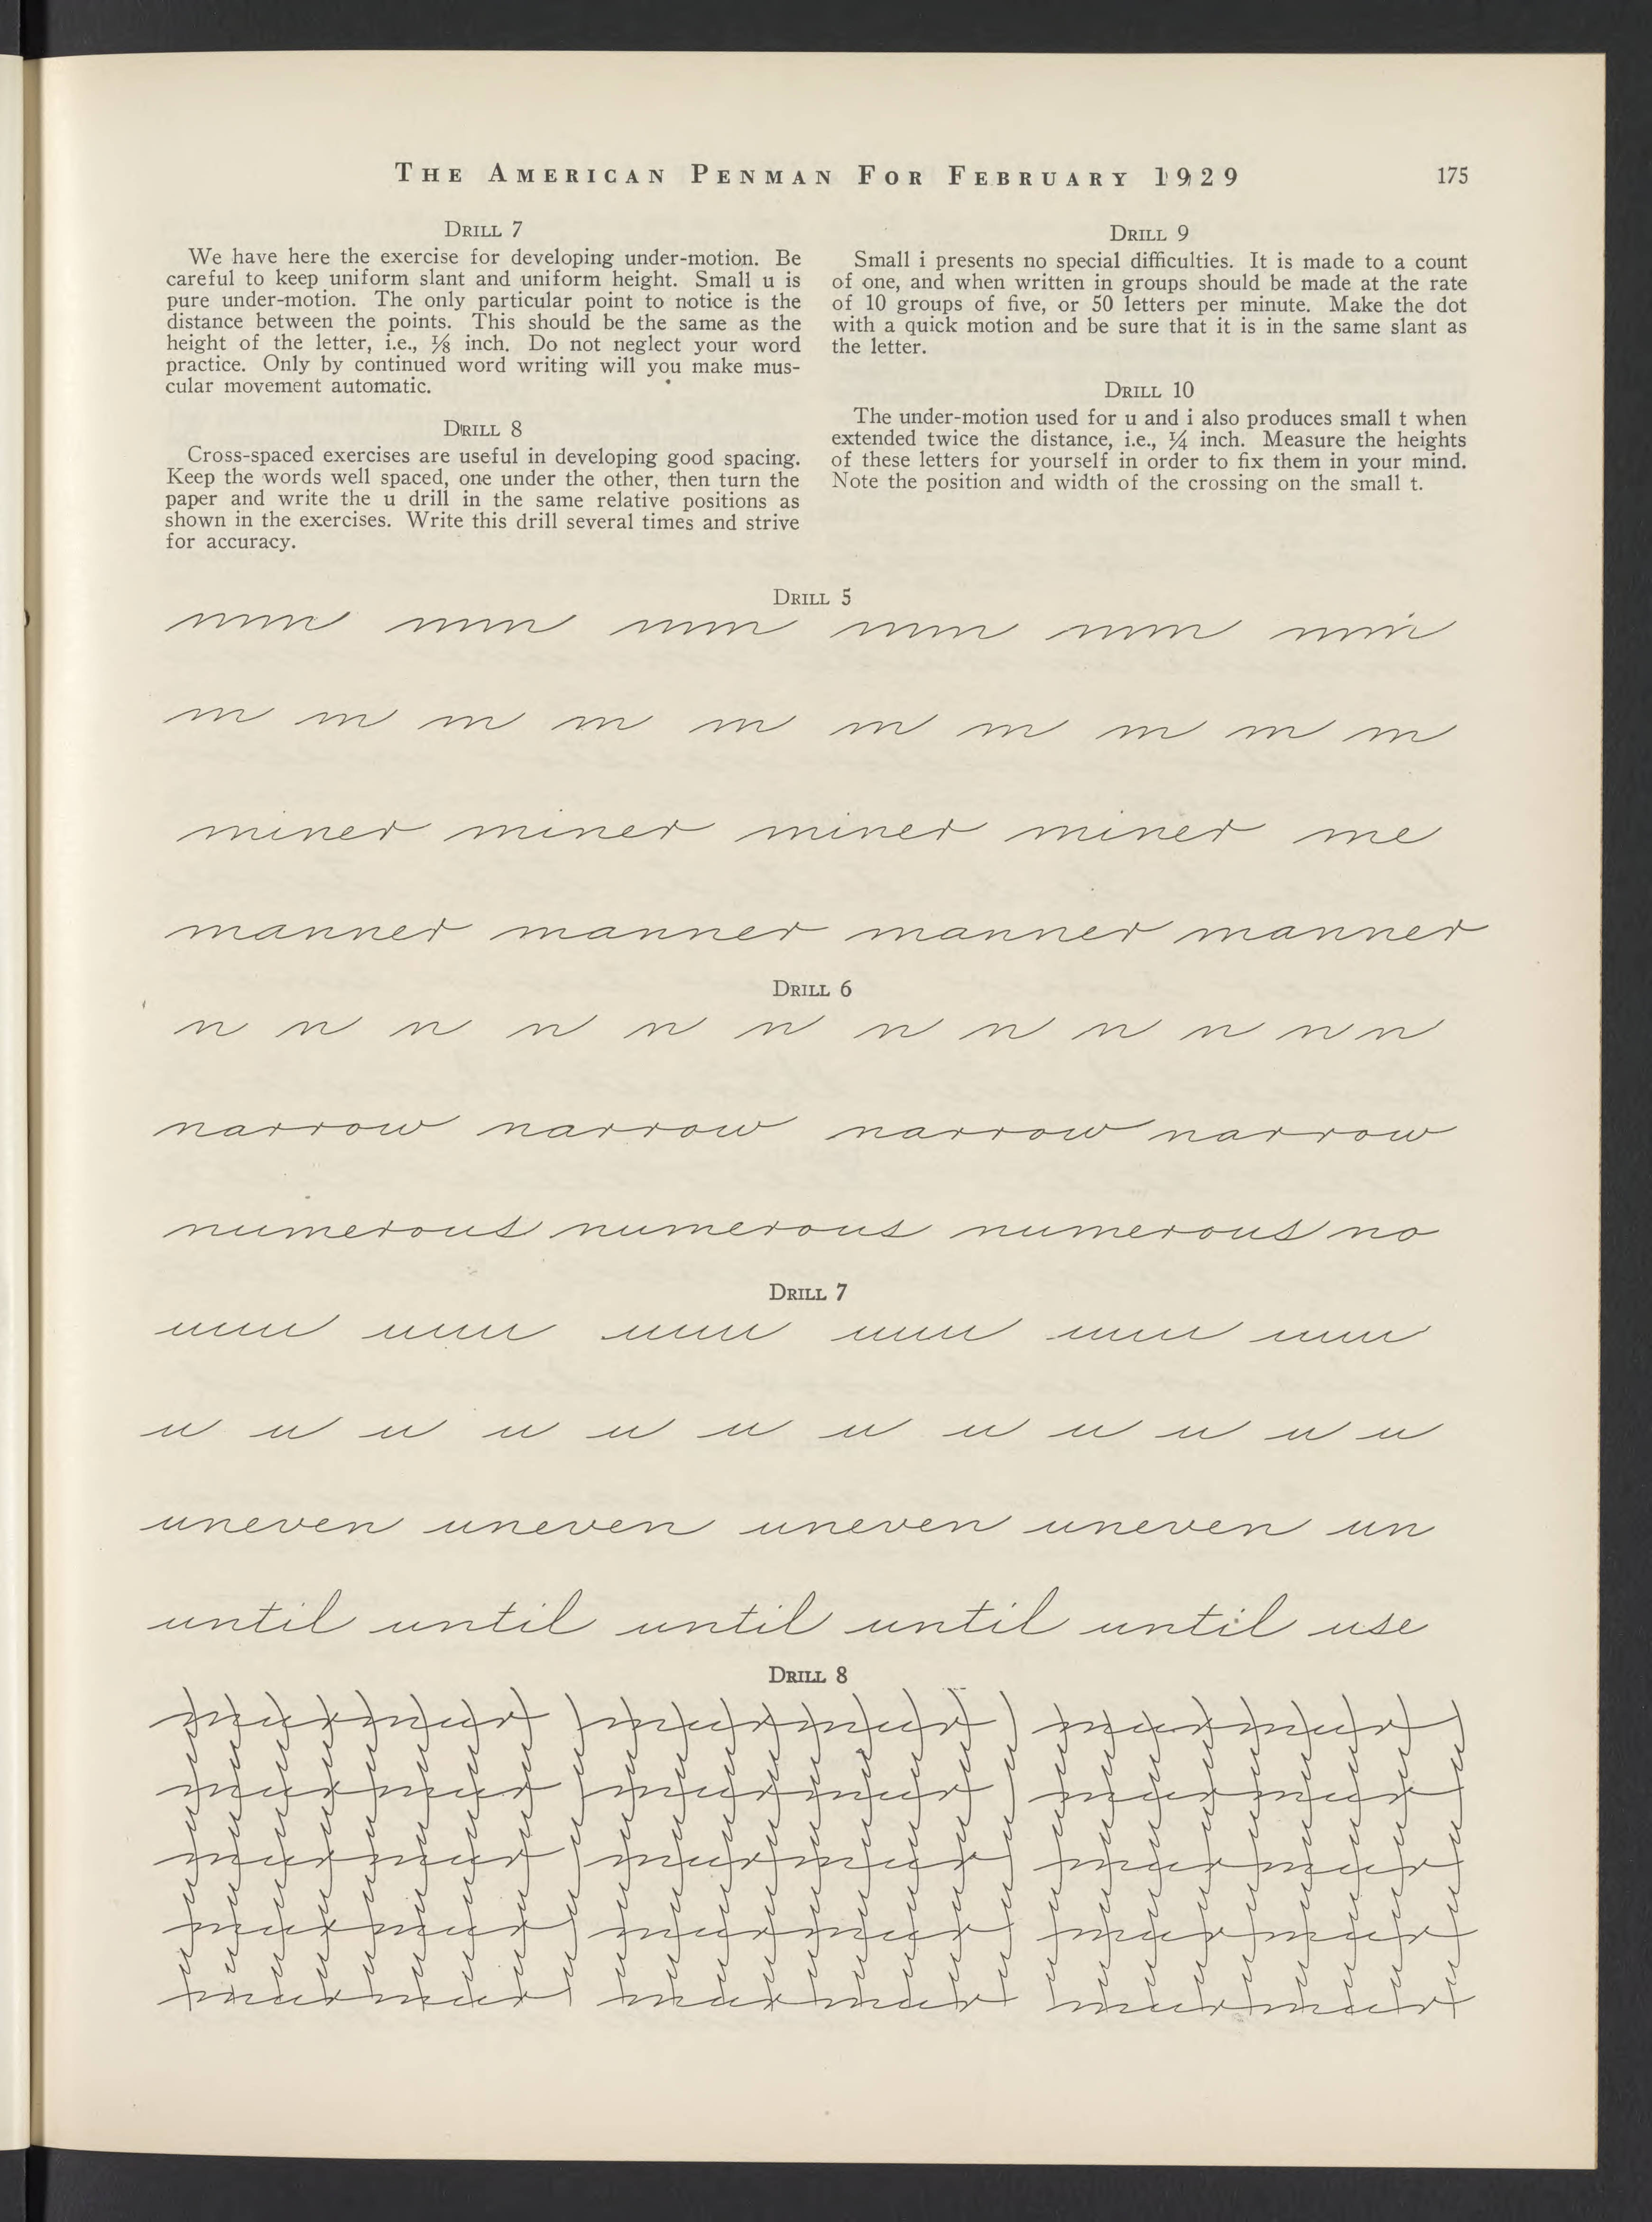 THE AMERICAN PENMAN FOR FEBRUARY 1929 175
DRILL 7
We have here the exercise for developing under-motion. Be
careful to keep uniform slant and uniform height. Small u is
pure under-motion. The only particular point to notice is the
distance between the points. This should be the same as the
height of the letter, i.e., ⅛ inch. Do not neglect your word
practice. Only by continued word writing will you make mus-
cular movement automatic.
DRILL 8
Cross-spaced exercises are useful in developing good spacing.
Keep the words well spaced, one under the other, then turn the
paper and write the u drill in the same relative positions as
shown in the exercises. Write this drill several times and strive
for accuracy.
DRILL 9
Small i presents no special difficulties. It is made to a count
of one, and when written in groups should be made at the rate
of 10 groups of five, or 50 letters per minute. Make the dot
with a quick motion and be sure that it is in the same slant as
the letter.
DRILL 10
The under-motion used for u and i also produces small t when
extended twice the distance, i.e., ¼ inch. Measure the heights
of these letters for yourself in order to fix them in your mind.
Note the position and width of the crossing on the small t.
DRILL 5
mm mm mm mm mm mm
m m m m m m m m m m
miner miner miner miner me
manner manner manner manner
DRILL 6
n n n n n n n n n n n n
narrow narrow narrow narrow
numerous numerous numerous no
DRILL 7
uuu uuu uuu uuu uuu uuu
u u u u u u u u u u u u
uneven uneven uneven uneven un
until until until until until use
DRILL 8
murmur murmur murmur
murmur murmur murmur
murmur murmur murmur
murmur murmur murmur
murmur murmur murmur